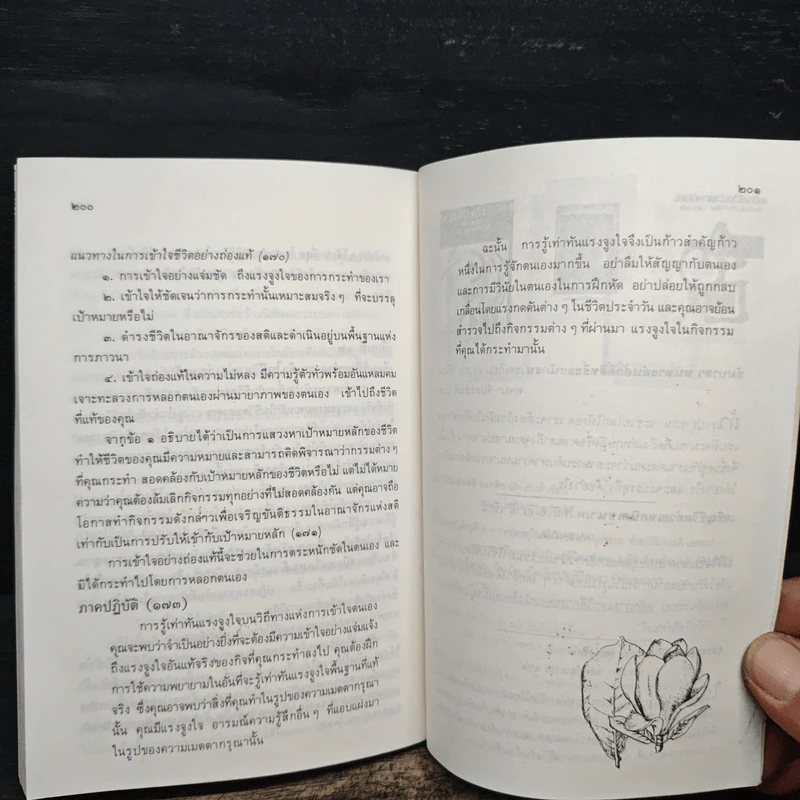 ๒๐๐
แนวทางในการเข้าใจชีวิตอย่างถ่องแท้ (๑๗๐)
๑. การเข้าใจอย่างแจ่มชัด ถึงแรงจูงใจของการกระทำของเรา
๒. เข้าใจให้ชัดเจนว่าการกระทำนั้นเหมาะสมจริงๆ ที่จะบรรลุ
เป้าหมายหรือไม่
๓. ดำรงชีวิตในอาณาจักรของสติและดำเนินอยู่บนพื้นฐานแห่ง
การภาวนา
๔. เข้าใจถ่องแท้ในความไม่หลง มีความรู้ตัวทั่วพร้อมอันแหลมคม
เจาะทะลวงการหลอกตนเองผ่านมายาภาพของตนเอง เข้าไปถึงชีวิต
ที่แท้ของคุณ
จากข้อ ๑ อธิบายได้ว่าเป็นการแสวงหาเป้าหมายหลักของชีวิต
ทำให้ชีวิตของคุณมีความหมายและสามารถคิดพิจารณาว่ากรรมต่างๆ
ที่คุณกระทำ สอดคล้องกับเป้าหมายหลักของชีวิตหรือไม่ แต่ไม่ได้หมาย
ความว่าคุณต้องล้มเลิกกิจกรรมทุกอย่างที่ไม่สอดคล้องกัน แต่คุณอาจถือ
โอกาสทำกิจกรรมดังกล่าวเพื่อเจริญขันติธรรมในอาณาจักรแห่งสติ
เท่ากับเป็นการปรับให้เข้ากับเป้าหมายหลัก (๑๗๑)
การเข้าใจอย่างถ่องแท้นี้จะช่วยในการตระหนักชัดในตนเอง และ
มิได้กระทำไปโดยการหลอกตนเอง
ภาคปฏิบัติ (๑๗๓)
การรู้เท่าทันแรงจูงใจบนวิถีทางแห่งการเข้าใจตนเอง
คุณจะพบว่าจำเป็นอย่างยิ่งที่จะต้องมีความเข้าใจอย่างแจ่มแจ้ง
ถึงแรงจูงใจอันแท้จริงของกิจที่คุณกระทำลงไป คุณต้องฝึก
การใช้ความพยายามในอันที่จะรู้เท่าทันแรงจูงใจพื้นฐานที่แท้
จริง ซึ่งคุณอาจพบว่าสิ่งที่คุณทำในรูปของความเมตตากรุณา
นั้น คุณมีแรงจูงใจ อารมณ์ความรู้สึกอื่นๆ ที่แอบแฝงมา
ในรูปของความเมตตากรุณานั้น
๒๐๑
ฉะนั้น การรู้เท่าทันแรงจูงใจจึงเป็นก้าวสำคัญก้าว
หนึ่งในการรู้จักตนเองมากขึ้น อย่าลืมให้สัญญากับตนเอง
และการมีวินัยในตนเองในการฝึกหัด อย่าปล่อยให้ถูกกลบ
เกลื่อนโดยแรงกดดันต่างๆ ในชีวิตประจำวัน และคุณอาจย้อน
สำรวจไปถึงกิจกรรมต่างๆ ที่ผ่านมา แรงจูงใจในกิจกรรม
ที่คุณได้กระทำมานั้น